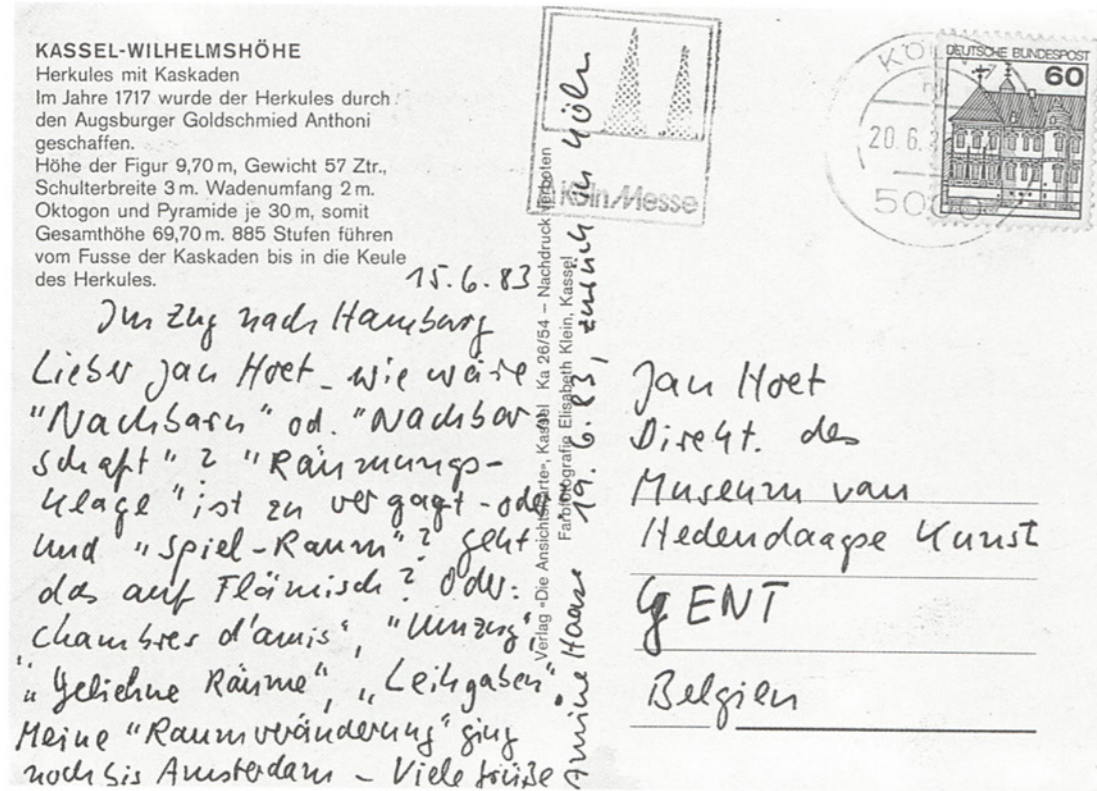 KASSEL-WILHELMSHÖHE
Herkules mit Kaskaden
Im Jahre 1717 wurde der Herkules durch
den Augsburger Goldschmied Anthoni
geschaffen.
Höhe der Figur 9,70 m, Gewicht 57 Ztr.,
Schulterbreite 3 m. Wadenumfang 2 m.
Oktogon und Pyramide je 30 m, somit
Gesamthöhe 69,70 m. 885 Stufen führen
vom Fusse der Kaskaden bis in die Keule
des Herkules.
15.6.83
Im Zug nach Hamburg
Lieber Jan Hoet - wie wäre
"Nachbarn" od. "Nachbar-
schaft"? "Räumungs-
klage" ist zu vergagt - oder
und "Spiel-Raum"? geht
das auf Flämisch? Oder:
"Chambres d'amis", "Umzug",
"Geliehne Räume", "Leihgaben".
Meine "Raumveränderung" ging
noch bis Amsterdam - Viele Grüße
Amine Haase 19.6.83, zurück in Köln
Verlag »Die Ansichtskarte«, Kassel Ka 26/54 – Nachdruck verboten
Farbfotografie Elisabeth Klein, Kassel
Köln Messe
KÖLN
20.6.
5000
DEUTSCHE BUNDESPOST
60
Jan Hoet
Direkt. des
Museum van
Hedendaagse Kunst
GENT
Belgien